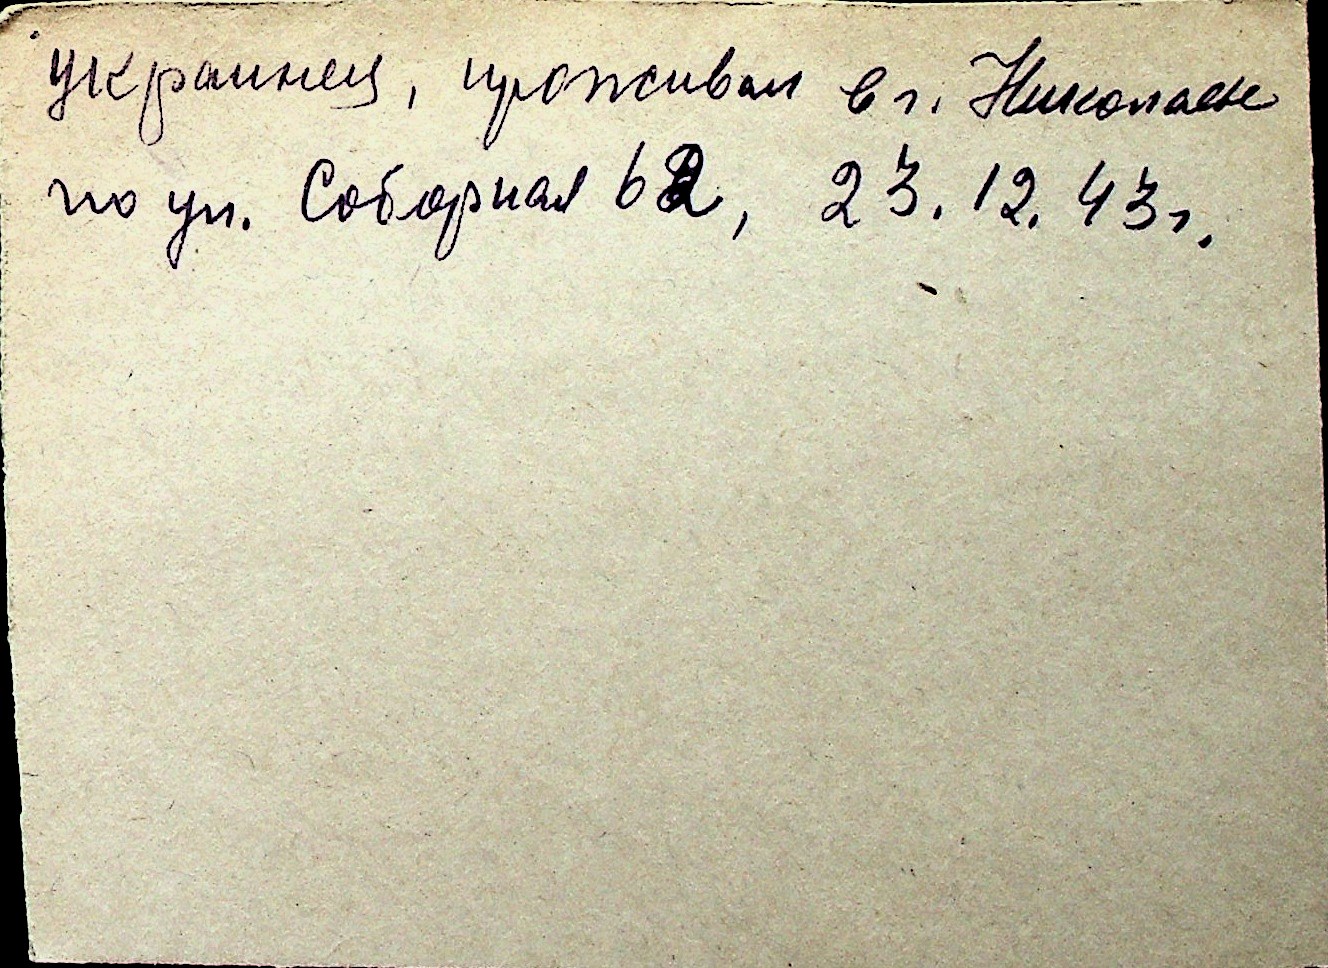 украинец, проживал в г. Николаеве
по ул. Соборная 62, 23.12.43г.